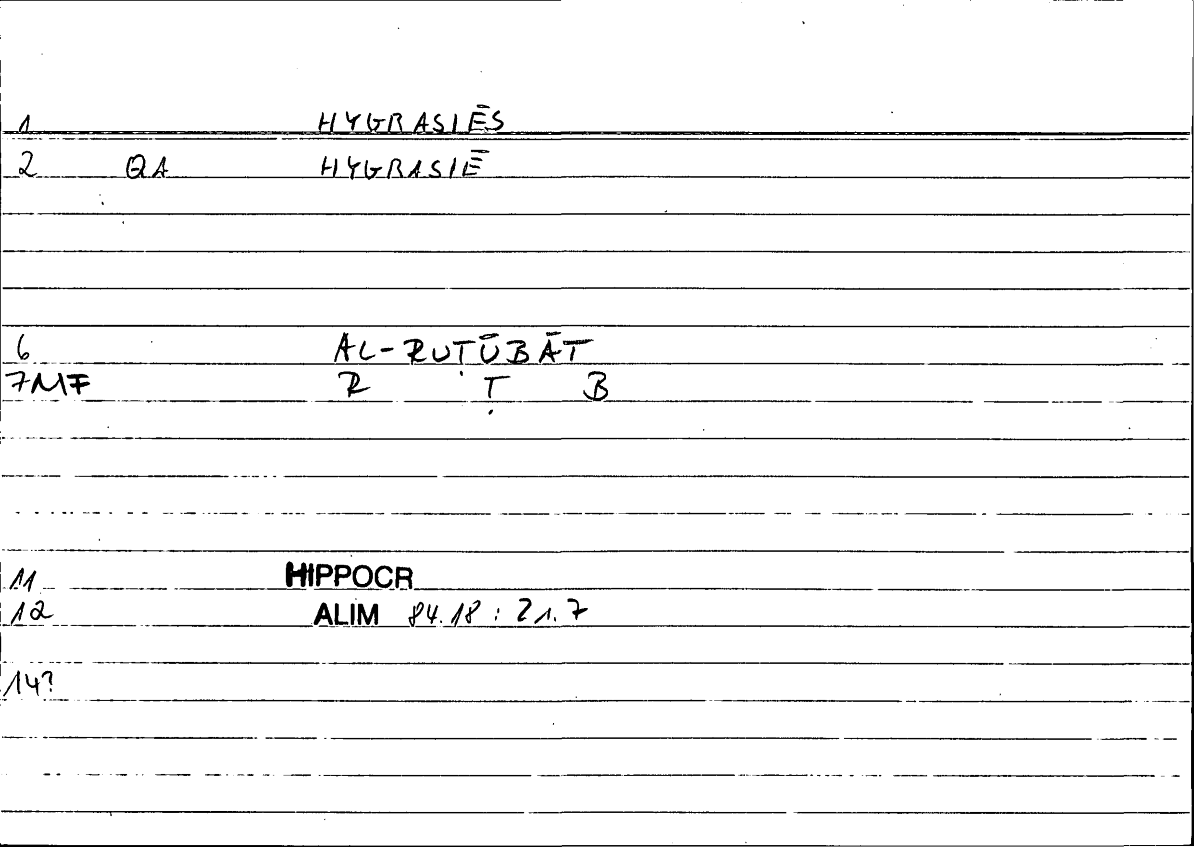 1 HYGRASIĒS
2 QA HYGRASIĒ
6 AL-RUṬŪBĀT
7MF R Ṭ B
11 HIPPOCR
12 ALIM 84.18 : 21.7
14?